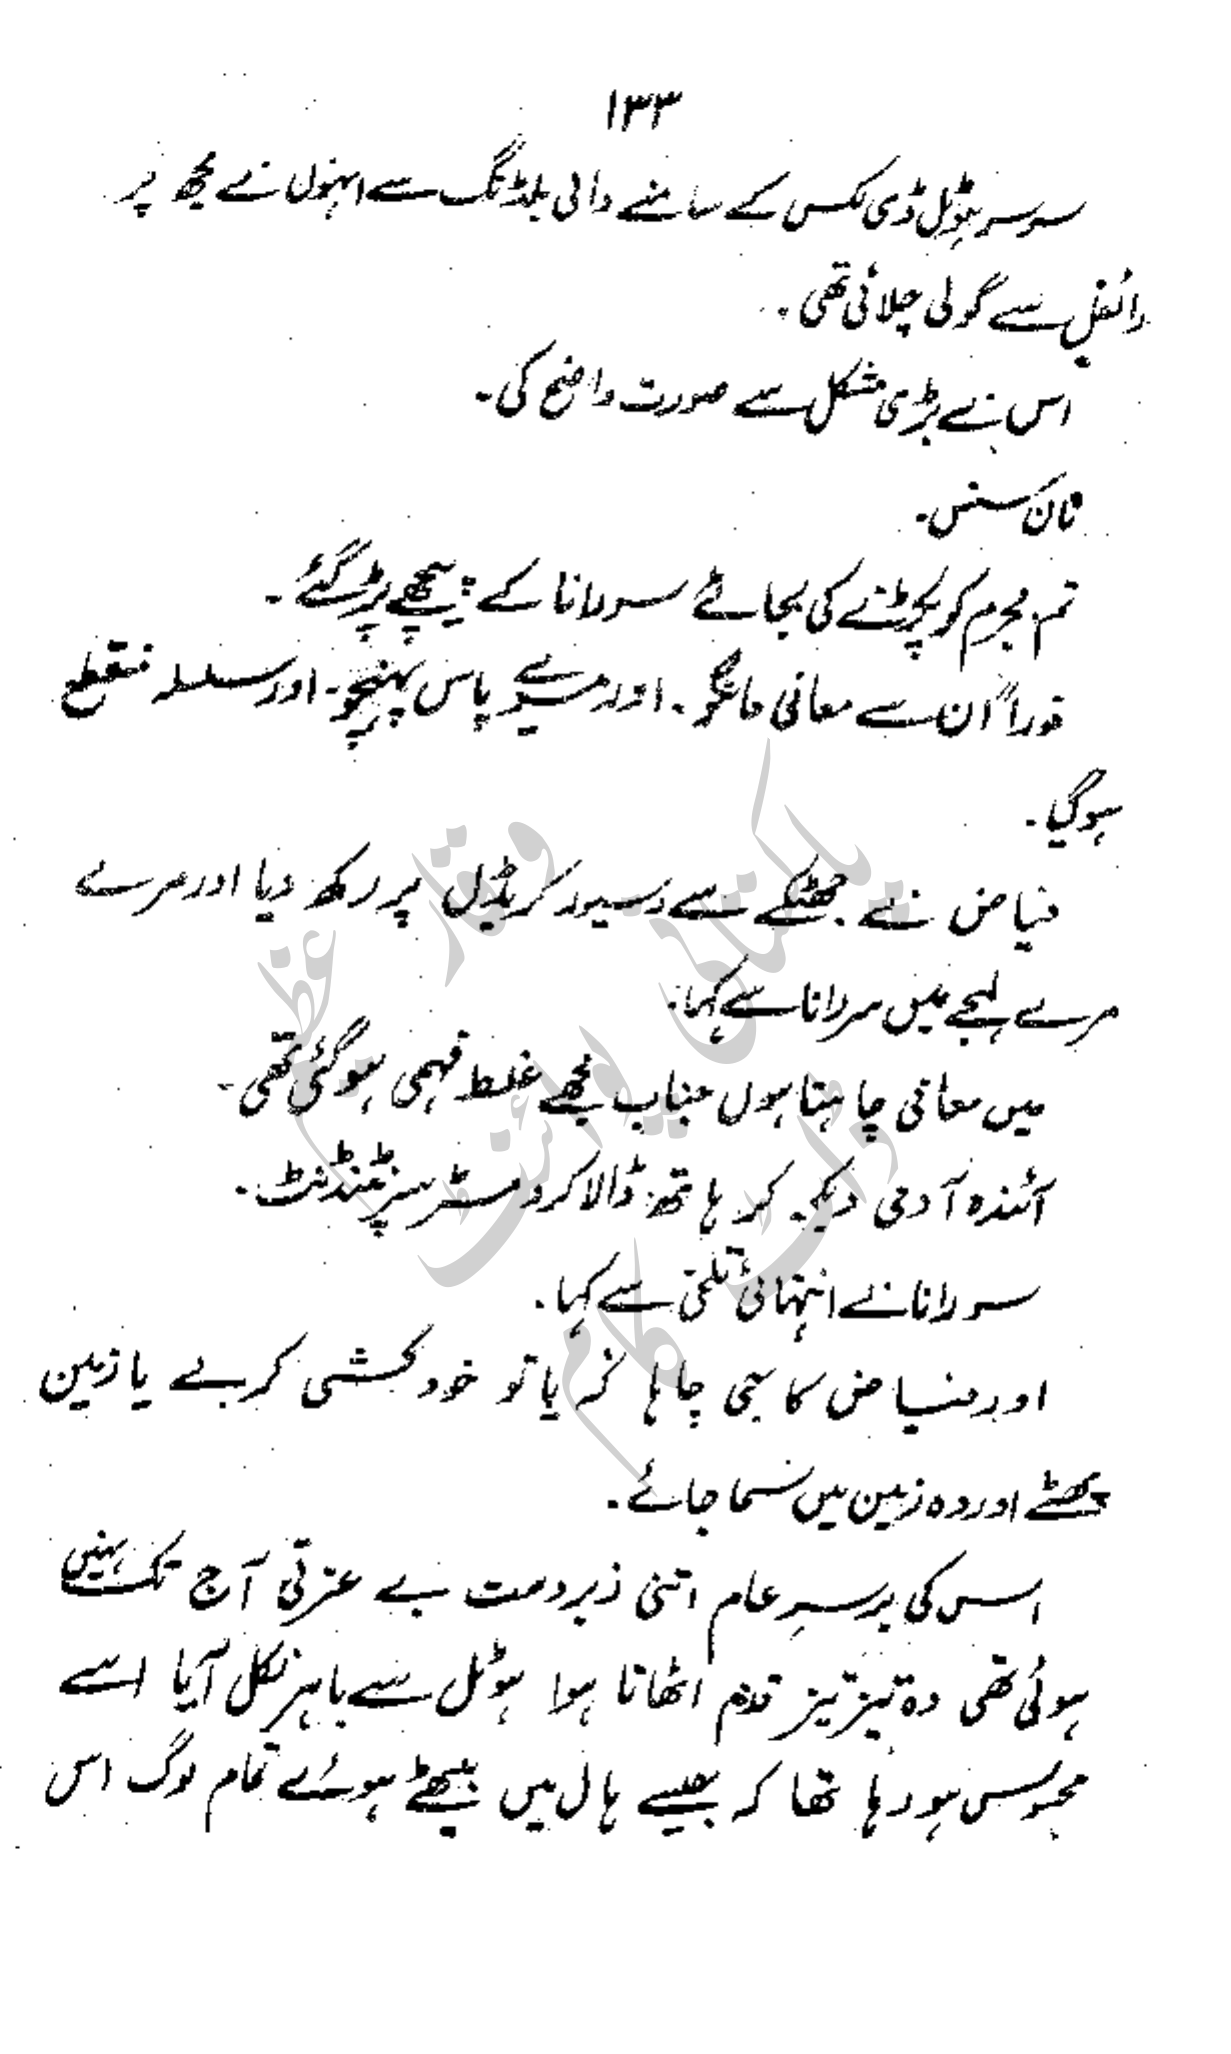 ۱۳۳
سر سر ہوٹل ڈی لکس کے سامنے والی بلڈنگ سے انہوں نے مجھ پر
رائفل سے گولی چلائی تھی۔
اس نے بڑی مشکل سے صورت واضح کی۔
نان سنس۔
تم مجرم کو پکڑنے کی بجائے سورانا کے پیچھے پڑ گئے۔
فوراً ان سے معافی مانگو۔ اور میرے پاس پہنچو۔ اور سلسلہ منقطع
ہو گیا۔
فیاض نے جھٹکے سے رسیور کریڈل پر رکھ دیا اور مرے
مرے لہجے میں سورانا سے کہا۔
میں معافی چاہتا ہوں جناب مجھے غلط فہمی ہو گئی تھی۔
آئندہ آدمی دیکھ کر ہاتھ ڈالا کرو مسٹر سپرنٹنڈنٹ۔
سورانا نے انتہائی تلخی سے کہا۔
اور فیاض کا جی چاہا کہ یا تو خودکشی کر لے یا زمین
پھٹے اور وہ زمین میں سما جائے۔
اس کی برسرِ عام اتنی زبردست بے عزتی آج تک نہیں
ہوئی تھی وہ تیز تیز قدم اٹھاتا ہوا ہوٹل سے باہر نکل آیا اسے
محسوس ہو رہا تھا کہ جیسے ہال میں بیٹھے ہوئے تمام لوگ اس
پاکستانی پوائنٹ ڈاٹ کام
وقار عظیم